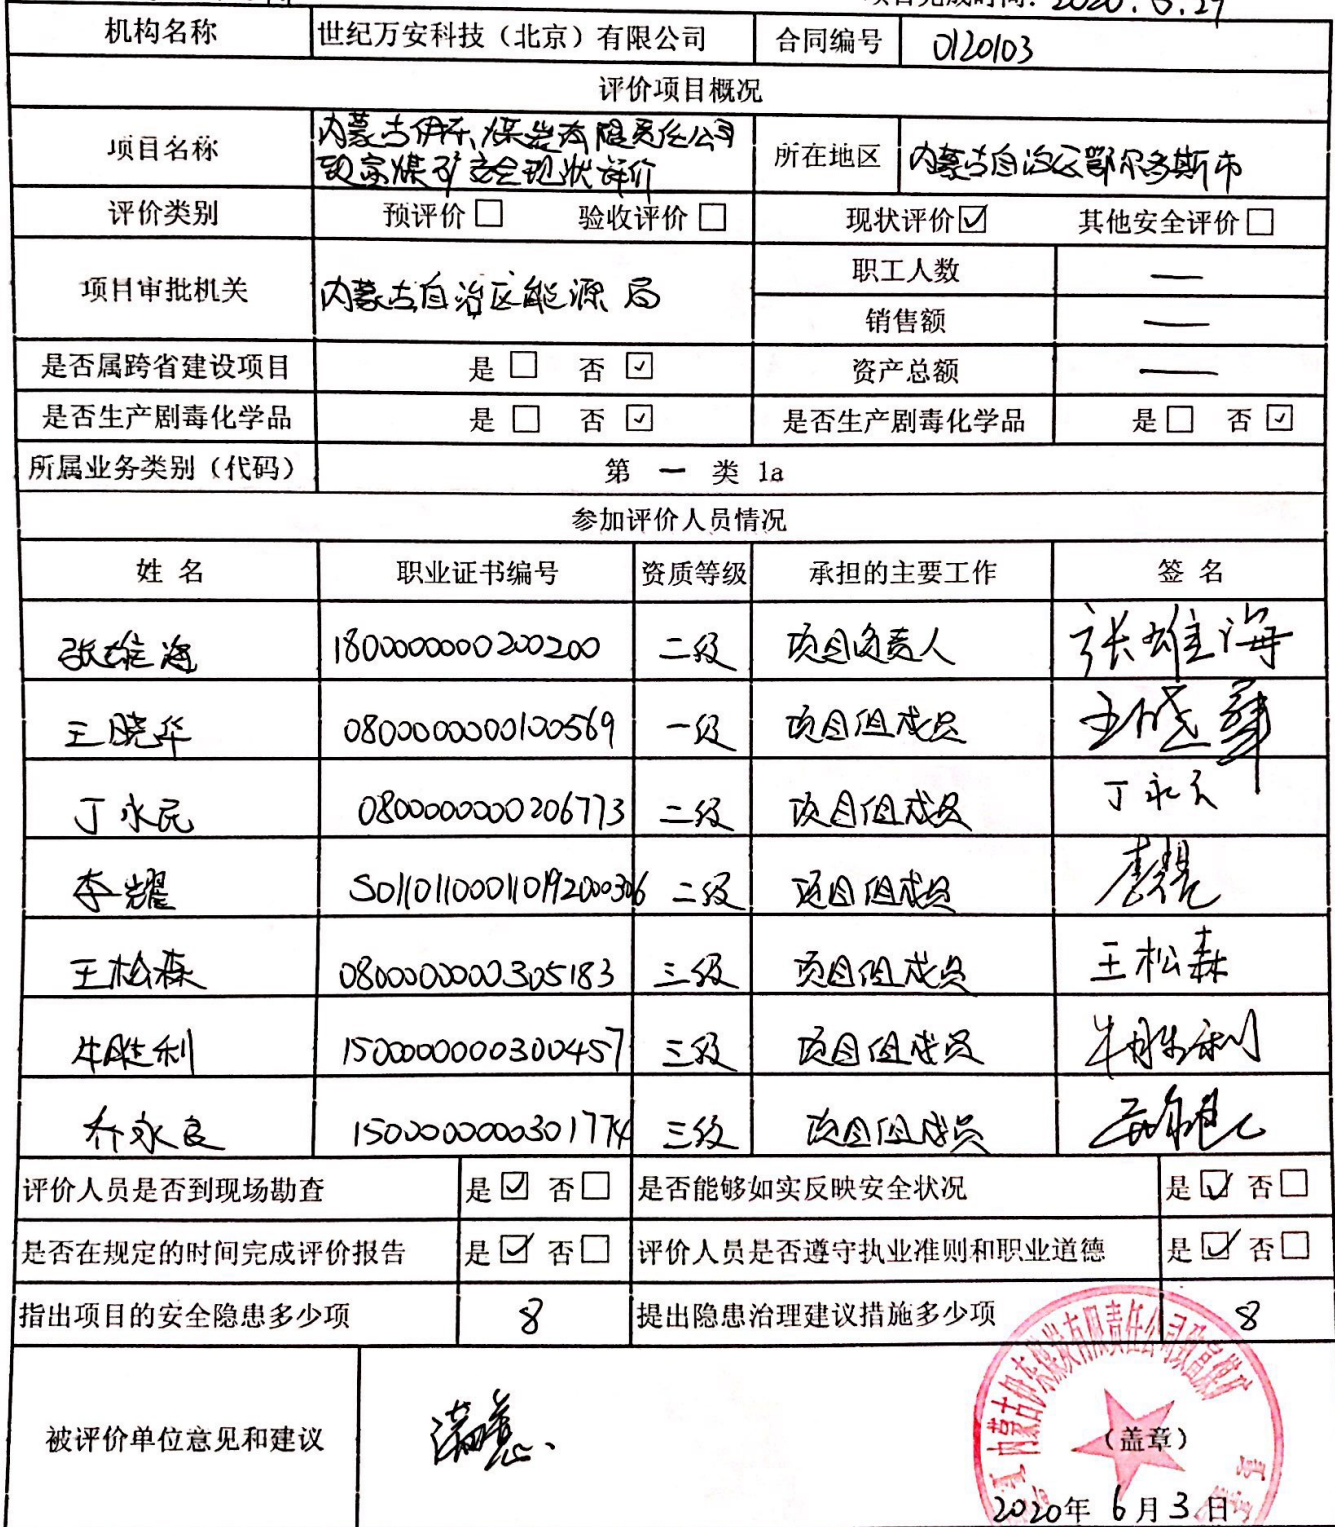 项目完成时间: 2020.5.29
机构名称 世纪万安科技（北京）有限公司 合同编号 0120103
评价项目概况
项目名称 内蒙古伊东煤炭有限责任公司 煤矿安全现状评价 所在地区 内蒙古自治区鄂尔多斯市
评价类别 预评价□ 验收评价□ 现状评价☑ 其他安全评价□
项目审批机关 内蒙古自治区能源局 职工人数 —
销售额 —
是否属跨省建设项目 是□ 否☑ 资产总额 —
是否生产剧毒化学品 是□ 否☑ 是否生产剧毒化学品 是□ 否☑
所属业务类别（代码） 第 一 类 1a
参加评价人员情况
姓 名 职业证书编号 资质等级 承担的主要工作 签 名
张雄海 1800000000200200 二级 项目负责人 张雄海
王晓华 0800000000100569 一级 项目组成员 王晓华
丁永民 0800000000206773 二级 项目组成员 丁永民
李耀 S011011000110192000306 二级 项目组成员 李耀
王松森 0800000000305183 三级 项目组成员 王松森
牛胜利 1500000000300457 三级 项目组成员 牛胜利
乔永良 1500000000301774 三级 项目组成员
评价人员是否到现场勘查 是☑ 否□ 是否能够如实反映安全状况 是☑ 否□
是否在规定的时间完成评价报告 是☑ 否□ 评价人员是否遵守执业准则和职业道德 是☑ 否□
指出项目的安全隐患多少项 8 提出隐患治理建议措施多少项 8
被评价单位意见和建议 满意、 （盖章）
2020年 6月 3日